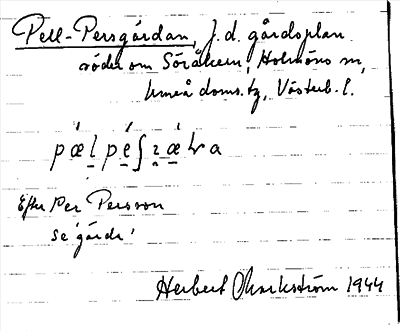 Pell-Persgårdan, f.d. gårdsplan
söder om Söråkern, Holmöns sn,
Umeå doms.tg, Västerb. l.
pæ̀l̠pe̠ʃɿæ̠ra
Efter Per Persson
se 'gårdr'
Herbert Markström 1944